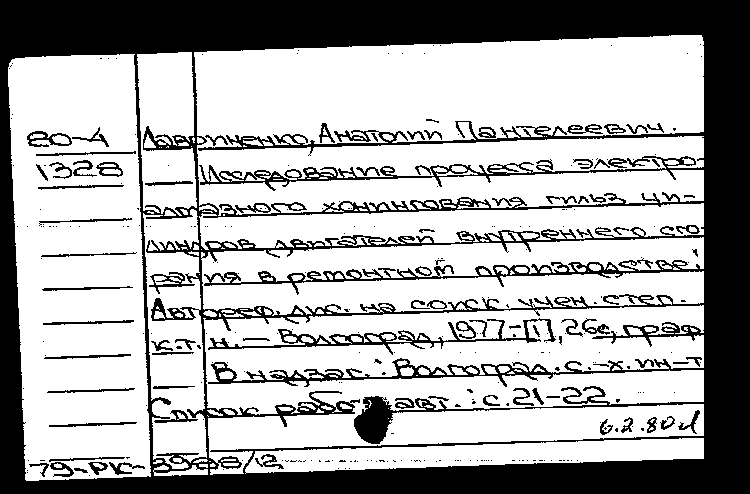 80-4 Лавриненко, Анатолий Пантелеевич.
1328 Исследование процесса электро-
алмазного хонингования гильз ци-
линдров двигателей внутреннего сго-
рания в ремонтном производстве:
Автореф. дис. на соиск. учен. степ.
к.т.н. — Волгоград, 1977.-[1], 26с, граф
В надзаг.: Волгоград. с.-х. ин-т
Список работ авт.: с.21-22.
6.2.80
79-РК- 3988/12